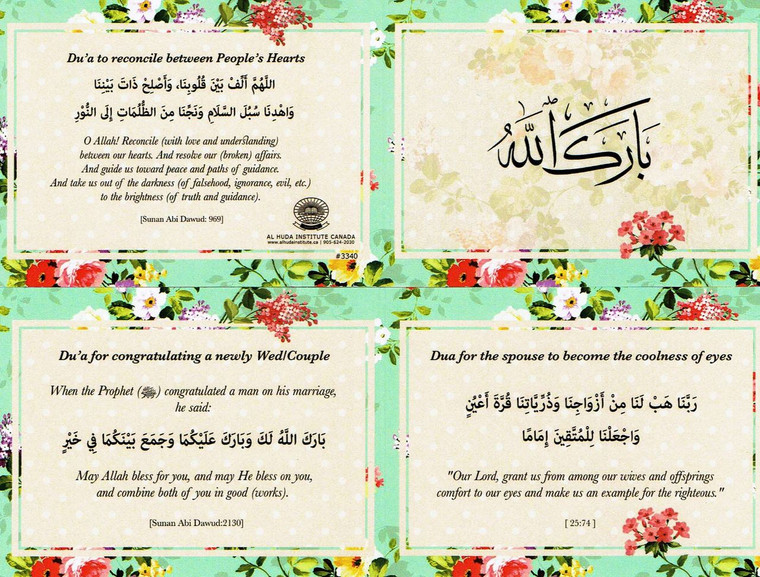 Du'a to reconcile between People's Hearts
اللَّهُمَّ أَلِّفْ بَيْنَ قُلُوبِنَا، وَأَصْلِحْ ذَاتَ بَيْنِنَا
وَاهْدِنَا سُبُلَ السَّلَامِ وَنَجِّنَا مِنَ الظُّلُمَاتِ إِلَى النُّوْرِ
O Allah! Reconcile (with love and understanding)
between our hearts. And resolve our (broken) affairs.
And guide us toward peace and paths of guidance.
And take us out of the darkness (of falsehood, ignorance, evil, etc.)
to the brightness (of truth and guidance).
[Sunan Abi Dawud: 969]
AL HUDA INSTITUTE CANADA
www.alhudainstitute.ca | 905-624-2030
#3340
بَارَكَ اللّٰهُ
Du'a for congratulating a newly Wed/Couple
When the Prophet (ﷺ) congratulated a man on his marriage,
he said:
بَارَكَ اللَّهُ لَكَ وَبَارَكَ عَلَيْكُمَا وَجَمَعَ بَيْنَكُمَا فِي خَيْرٍ
May Allah bless for you, and may He bless on you,
and combine both of you in good (works).
[Sunan Abi Dawud:2130]
Dua for the spouse to become the coolness of eyes
رَبَّنَا هَبْ لَنَا مِنْ أَزْوَاجِنَا وَذُرِّيَّاتِنَا قُرَّةَ أَعْيُنٍ
وَاجْعَلْنَا لِلْمُتَّقِينَ إِمَامًا
"Our Lord, grant us from among our wives and offsprings
comfort to our eyes and make us an example for the righteous."
[ 25:74 ]